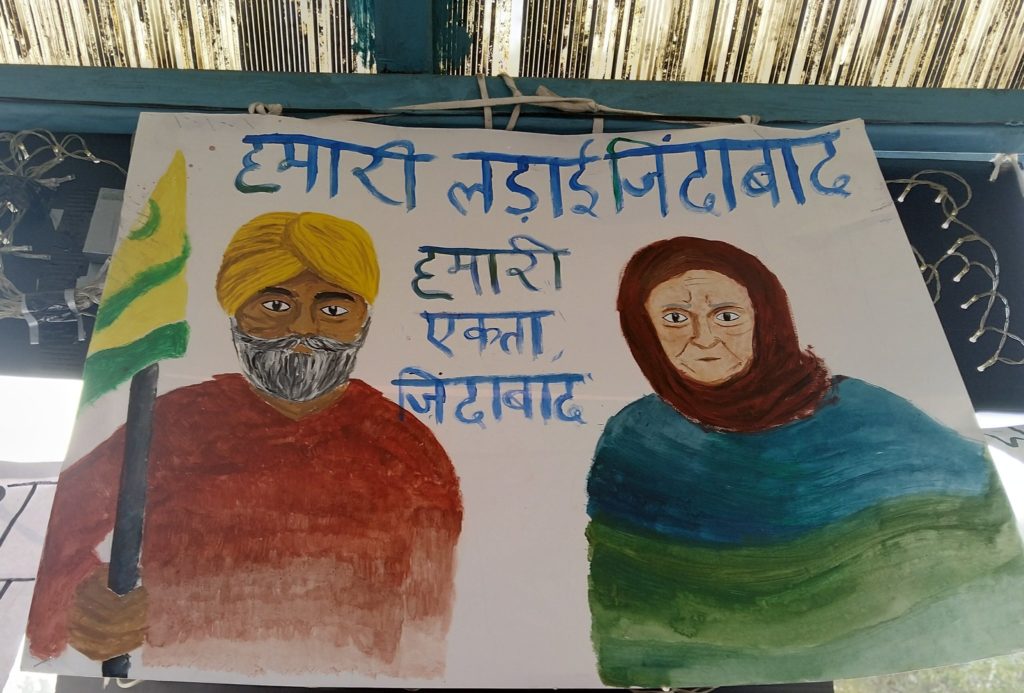 हमारी लड़ाई जिंदाबाद
हमारी
एकता
जिंदाबाद